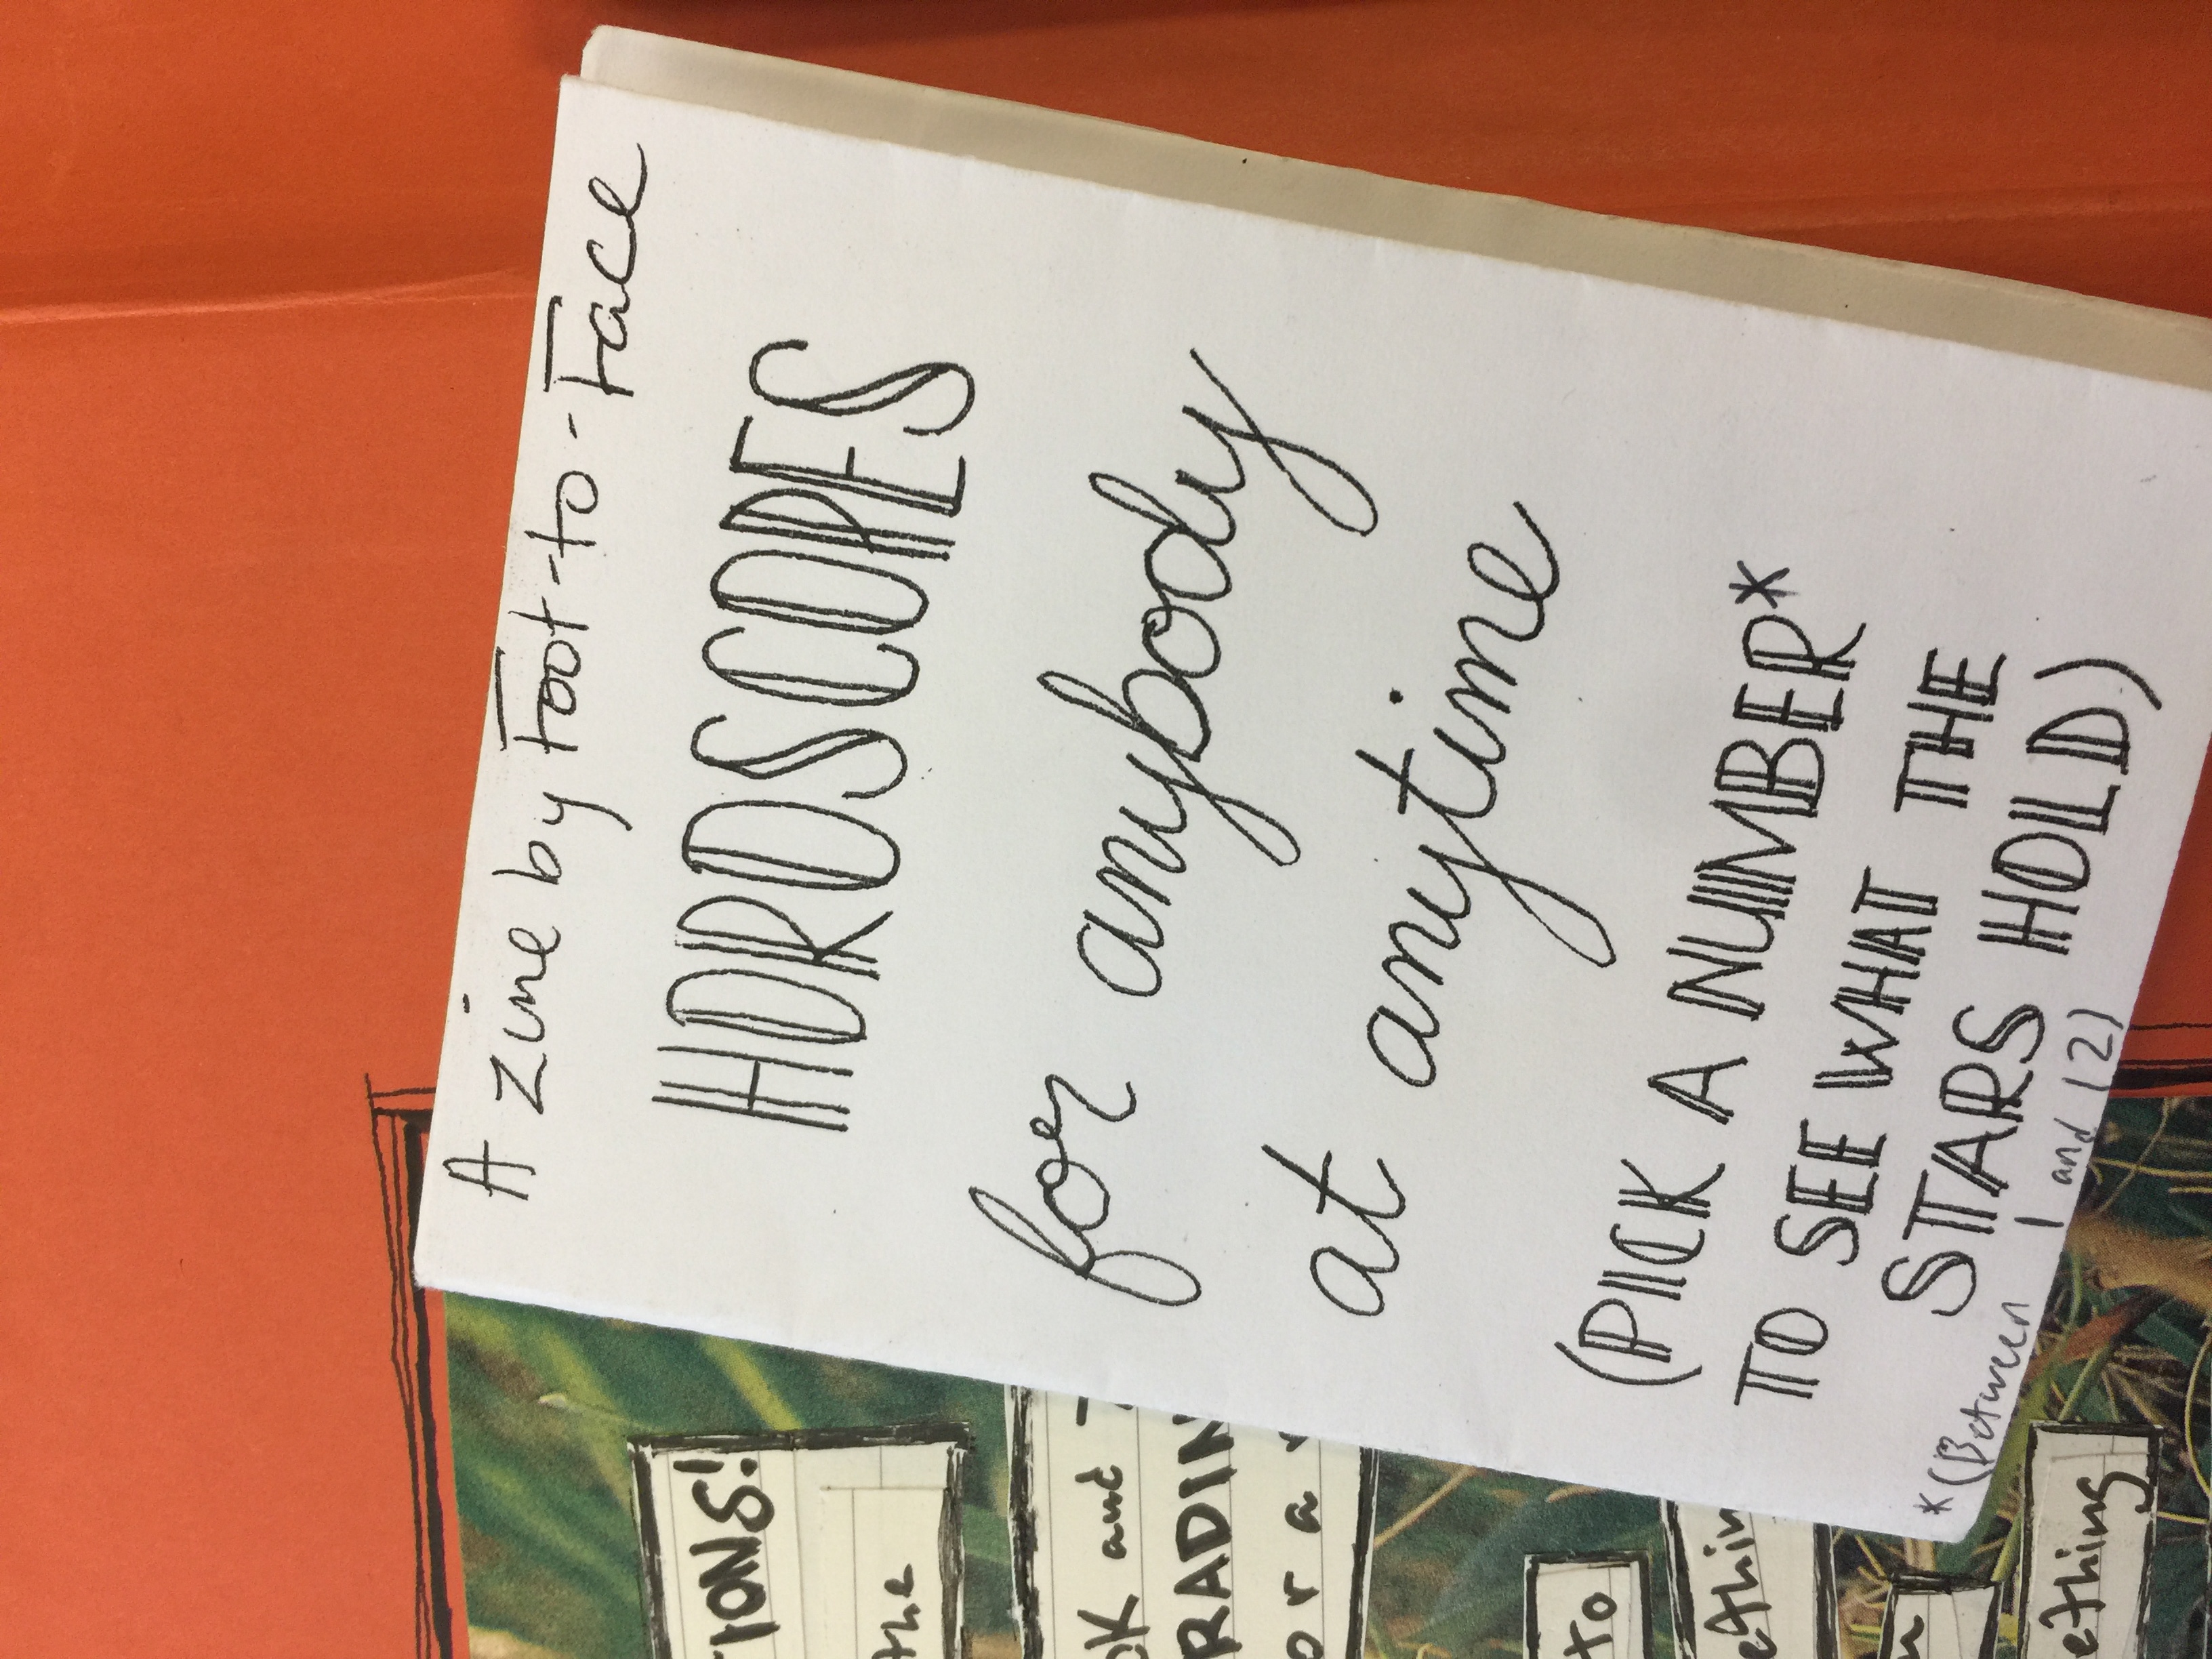 A Zine by Foot-to-Face
HOROSCOPES
for anybody
at anytime
(PICK A NUMBER*
TO SEE WHAT THE
STARS HOLD)
*(Between 1 and 12)
TIONS!
the
OK and
RADIN
or a
to
ethin
n
ething